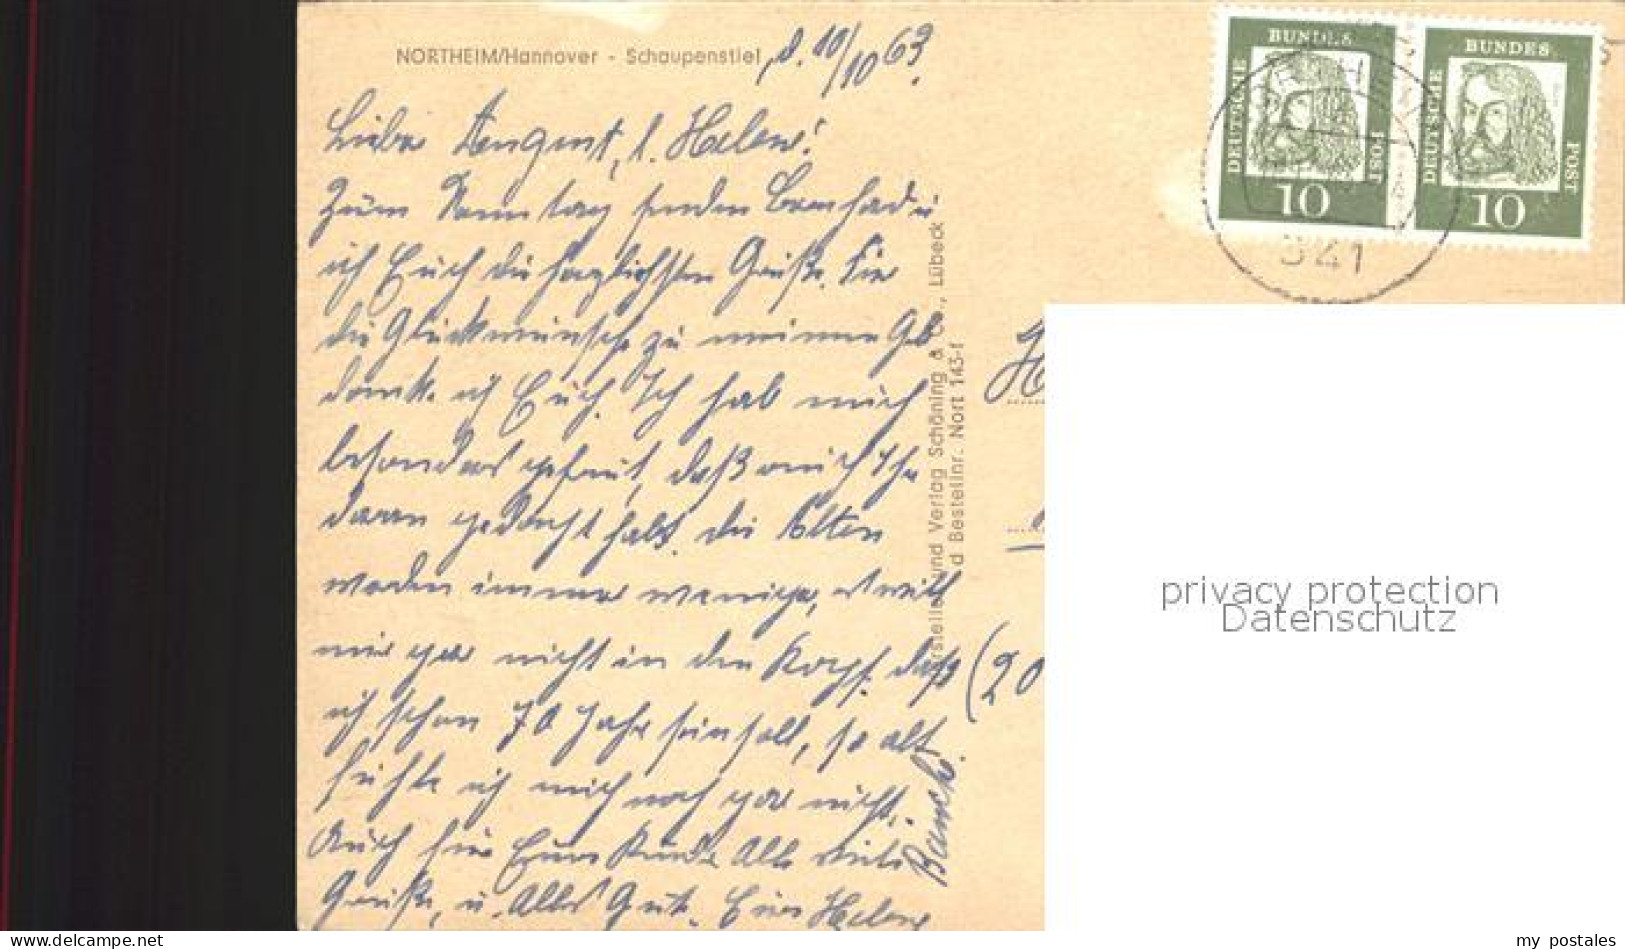 NORTHEIM/Hannover - Schaupenstiel
d. 10/10 63.
Liebe August, l. Helene!
Zum Sonntag senden Bernhard u
ich Euch die herzlichsten Grüße. Für
die Glückwünsche zu meinem Geb.
danke ich Euch. Ich hab mich
besonders gefreut, daß auch Ihr
daran gedacht habt. die Alten
werden immer weniger, es will
mir gar nicht in den Kopf, daß
ich schon 70 Jahr sein soll, so alt
fühle ich mich noch gar nicht.
Auch für Eure Kinder Alle viele
Grüße, u. Alles Gute. Eure Helene
Hersteller und Verlag Schöning & Co., Lübeck
d Bestellnr. Nort 143-f
H
(20
DEUTSCHE
BUNDES
POST
10
DEUTSCHE
BUNDES
POST
10
341
privacy protection
Datenschutz
my postales